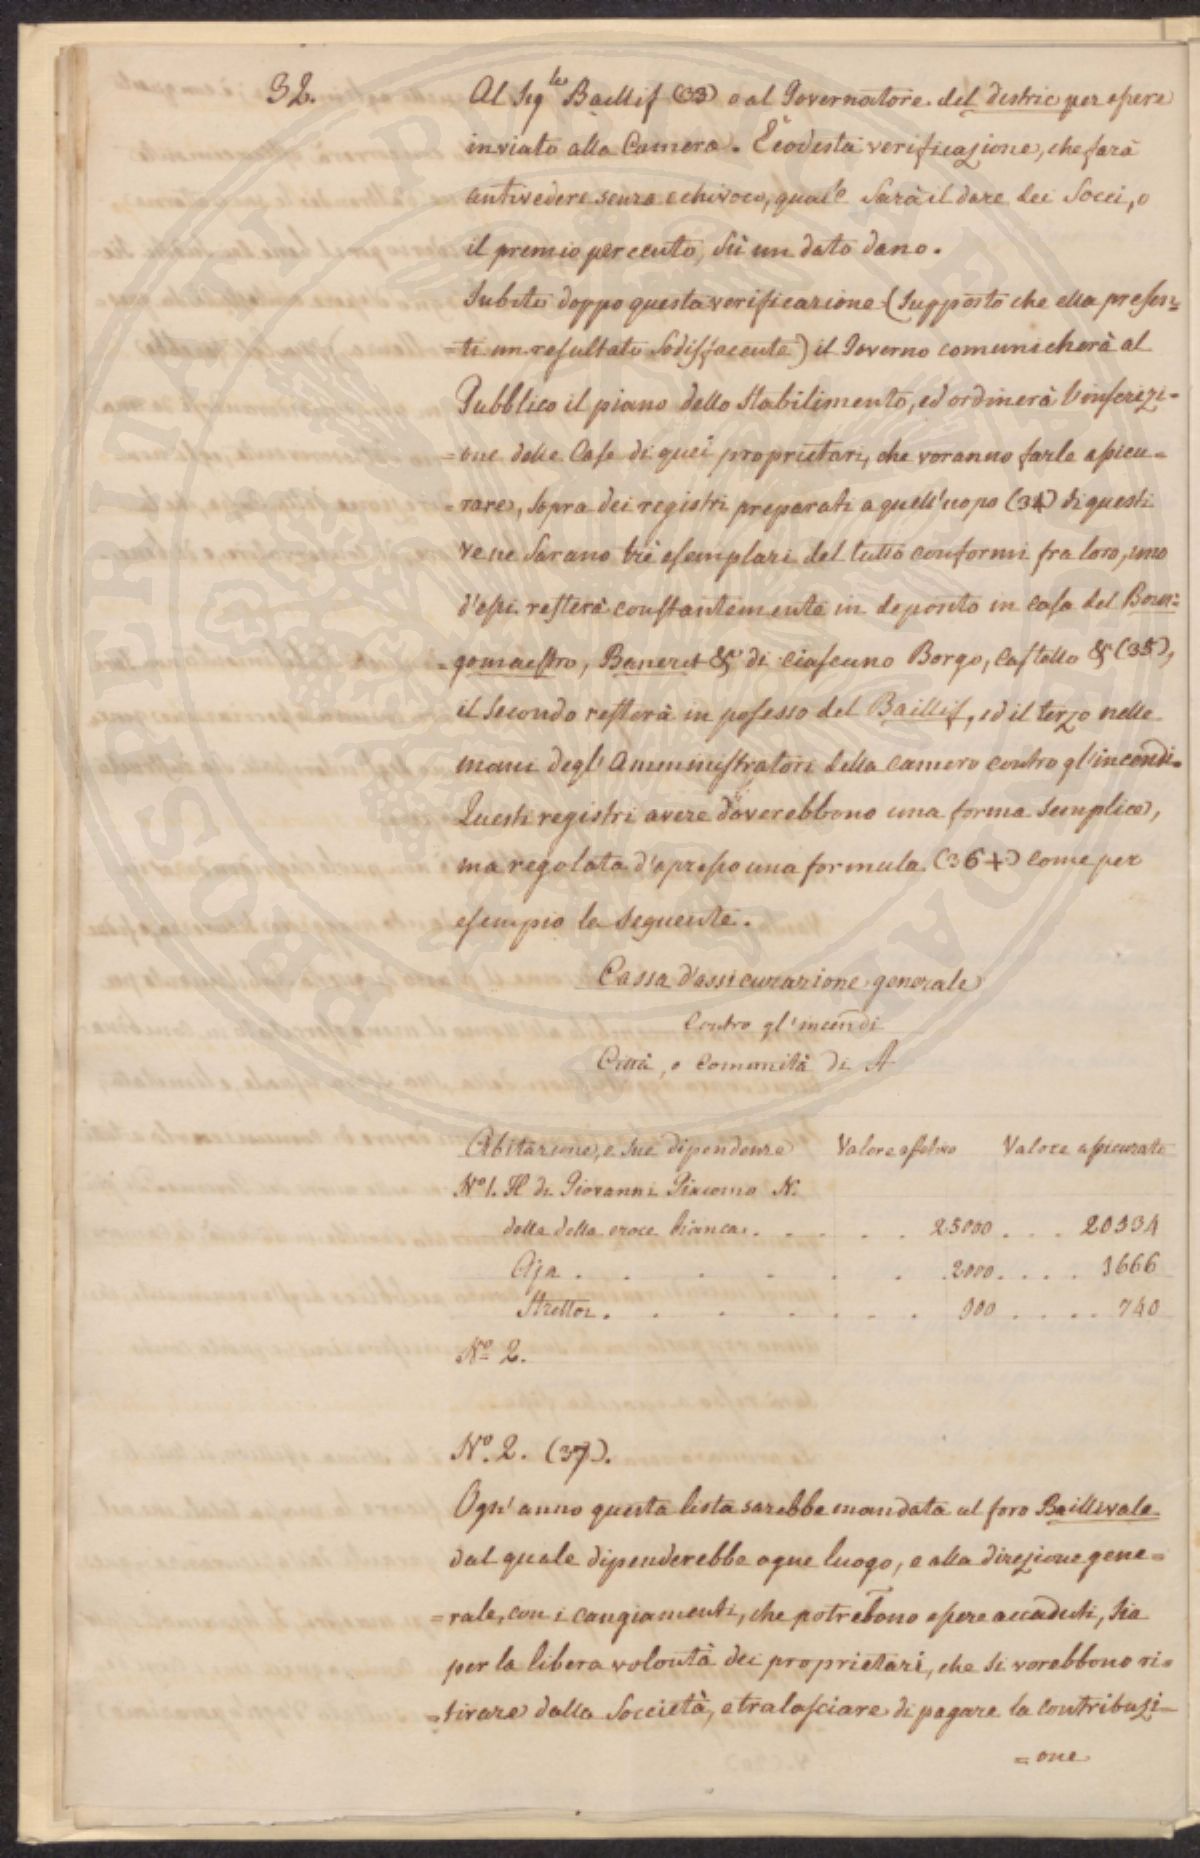 32.
Al Seg.le Baillif (33) o al Governatore del distric per essere
inviato alla Camera. E codesta verificazione, che farà
antivedere senza echivoco, quale sarà il dare dei Socci, o
il premio per cento, sù un dato dano.
Subito doppo questa verificazione (supposto che ella presen=
=ti un resultato sodisfacente) il Governo comunicherà al
Pubblico il piano dello Stabilimento, ed ordinerà l'inscrizi=
=one delle Case di quei proprietari, che voranno farle assicu=
=rare, sopra dei registri preparati a quell'uopo (34) di questi
ve ne sarano trè esemplari del tutto conformi fra loro, uno
d'essi resterà constantemente in deposito in casa del Borg=
=gomaestro, Baneret & di ciascuno Borgo, castello & (35),
il secondo resterà in posesso del Baillif, ed il terzo nelle
mani degl'Amministratori della camera contro gl'incendi.
Questi registri avere doverebbono una forma semplice,
ma regolata d'apresso una formula (36+) come per
esempio la seguente.
Cassa d'assicurazione generale
Contro gl'incendi
Città, o comunità di A
Abitazione, e sue dipendenze Valore efetivo Valore assicurato
No 1. H di Giovanni Giacomo N.
della della croce bianca . . . . . 25000 . . . 20334
Aja . . . . . . 2000 . . . . 1666
Strettoi . . . . . . 900 . . . . 740
No 2.
No. 2. (37).
Ogn'anno questa lista sarebbe mandata al foro Baillivale
dal quale dipenderebbe ogne luogo, e alla direzione gene=
=rale, con i cangiamenti, che potrebono essere accaduti, sia
per la libera volontà dei proprietari, che si vorebbono ri=
=tirare dalla Soccietà, e tralasciare di pagare la contribuzi=
=one